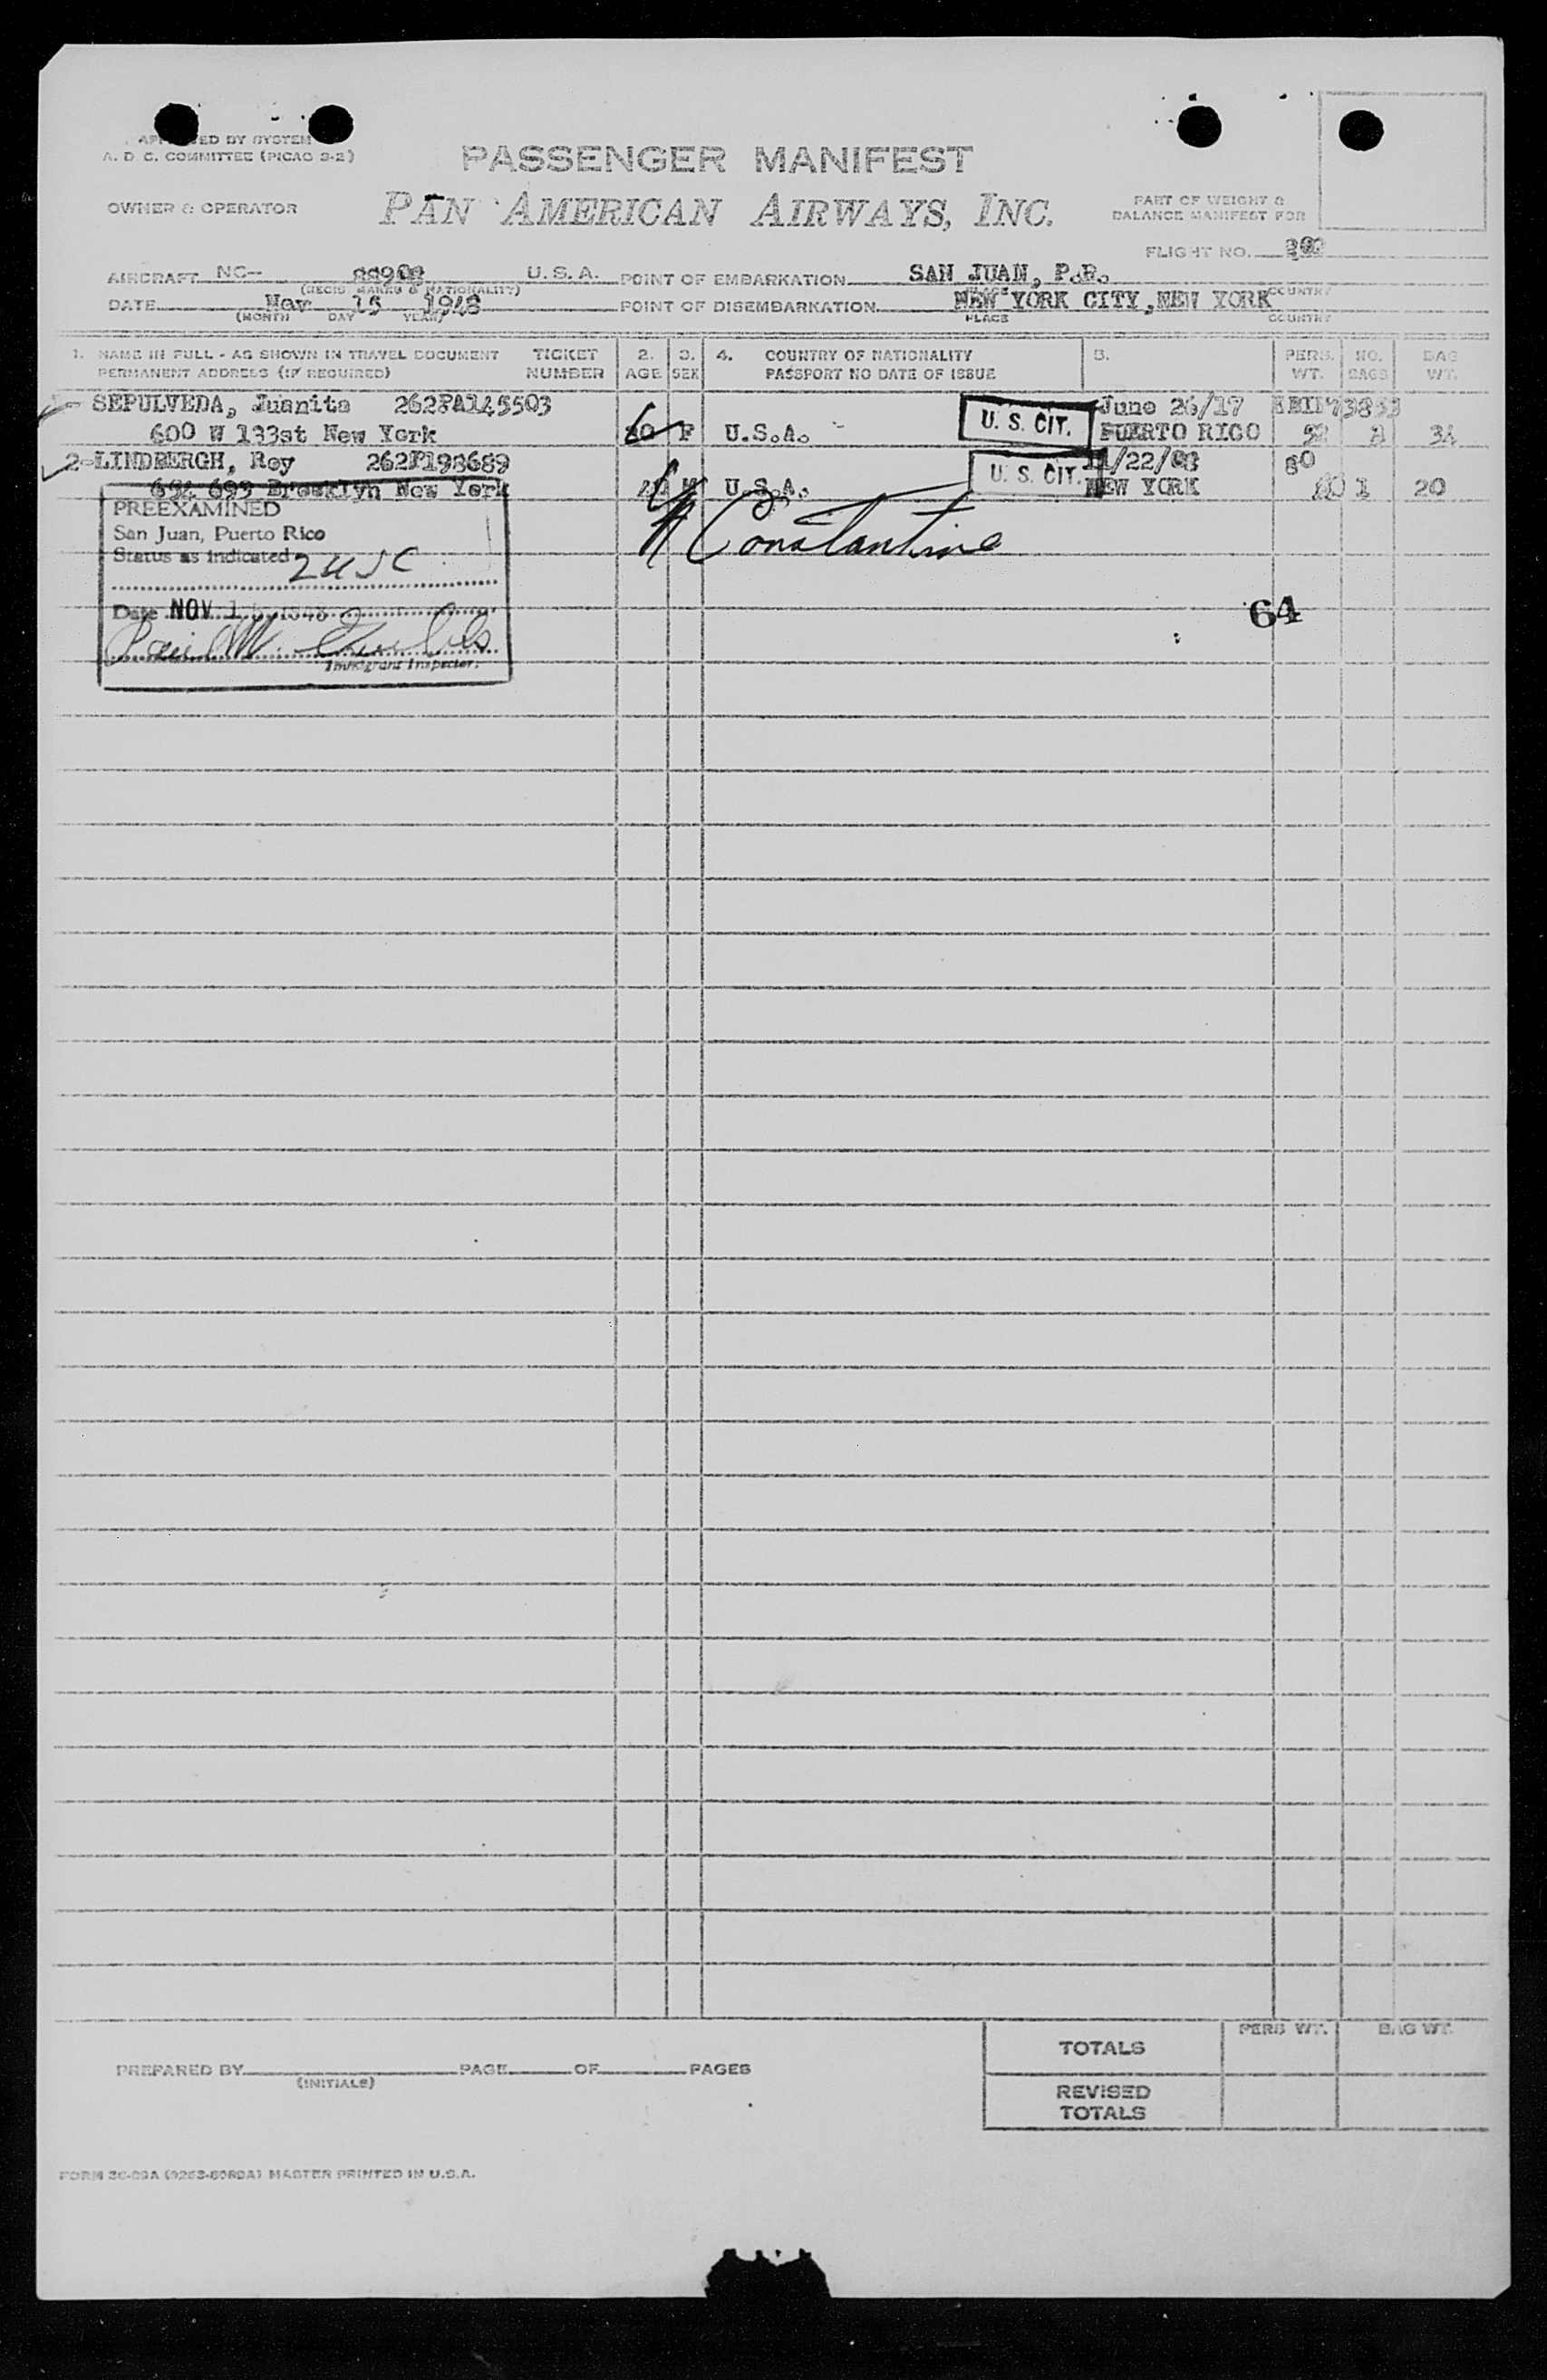 APPROVED BY SYSTEM
A. D. C. COMMITTEE (PICAO S-2)
PASSENGER MANIFEST
OWNER & OPERATOR
PAN AMERICAN AIRWAYS, INC.
PART OF WEIGHT &
BALANCE MANIFEST FOR
FLIGHT NO.
AIRCRAFT NC- U. S. A. POINT OF EMBARKATION SAN JUAN, P.R.
(REGIS MARKS & NATIONALITY) PLACE COUNTRY
DATE Nov 15 1948 POINT OF DISEMBARKATION NEW YORK CITY, NEW YORK
(MONTH DAY YEAR) PLACE COUNTRY
1. NAME IN FULL - AS SHOWN IN TRAVEL DOCUMENT TICKET 2. 3. 4. COUNTRY OF NATIONALITY 5. PERS. NO. BAG
PERMANENT ADDRESS (IF REQUIRED) NUMBER AGE SEX PASSPORT NO DATE OF ISSUE WT. BAGS WT.
SEPULVEDA, Juanita 262PA145503 June 26/17
600 W 133st New York F U.S.A. U. S. CIT. PUERTO RICO
2-LINDBERGH, Roy 262F198689 80
693 Brooklyn New York M U.S.A. U. S. CIT. NEW YORK 1 20
PREEXAMINED
San Juan, Puerto Rico
Status as indicated 2 USC
Constantine
Date NOV 1 1948
64
Immigrant Inspector.
TOTALS PERS WT. BAG WT.
PREPARED BY PAGE OF PAGES
(INITIALS)
REVISED
TOTALS
MASTER PRINTED IN U.S.A.